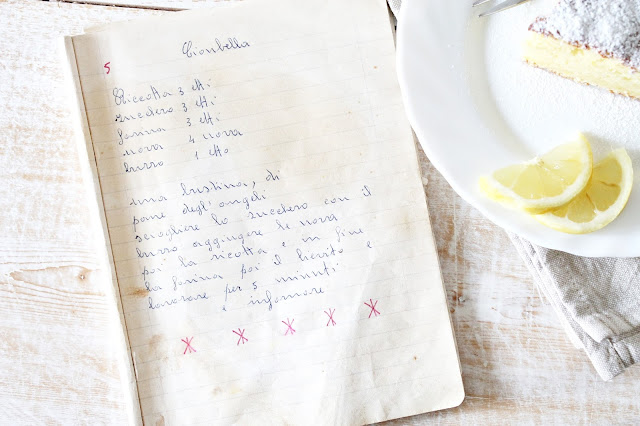 Ciambella
5
Riccotta 3 etti
zucchero 3 etti
farina 3 etti
uova 4 uova
burro 1 etto
una bustina, di
pane degl'angeli
scogliere lo zucchero con il
burro aggiungere le uova
poi la ricotta e in fine
la farina poi il lievito e
lavorare per 5 minuti
e infornare